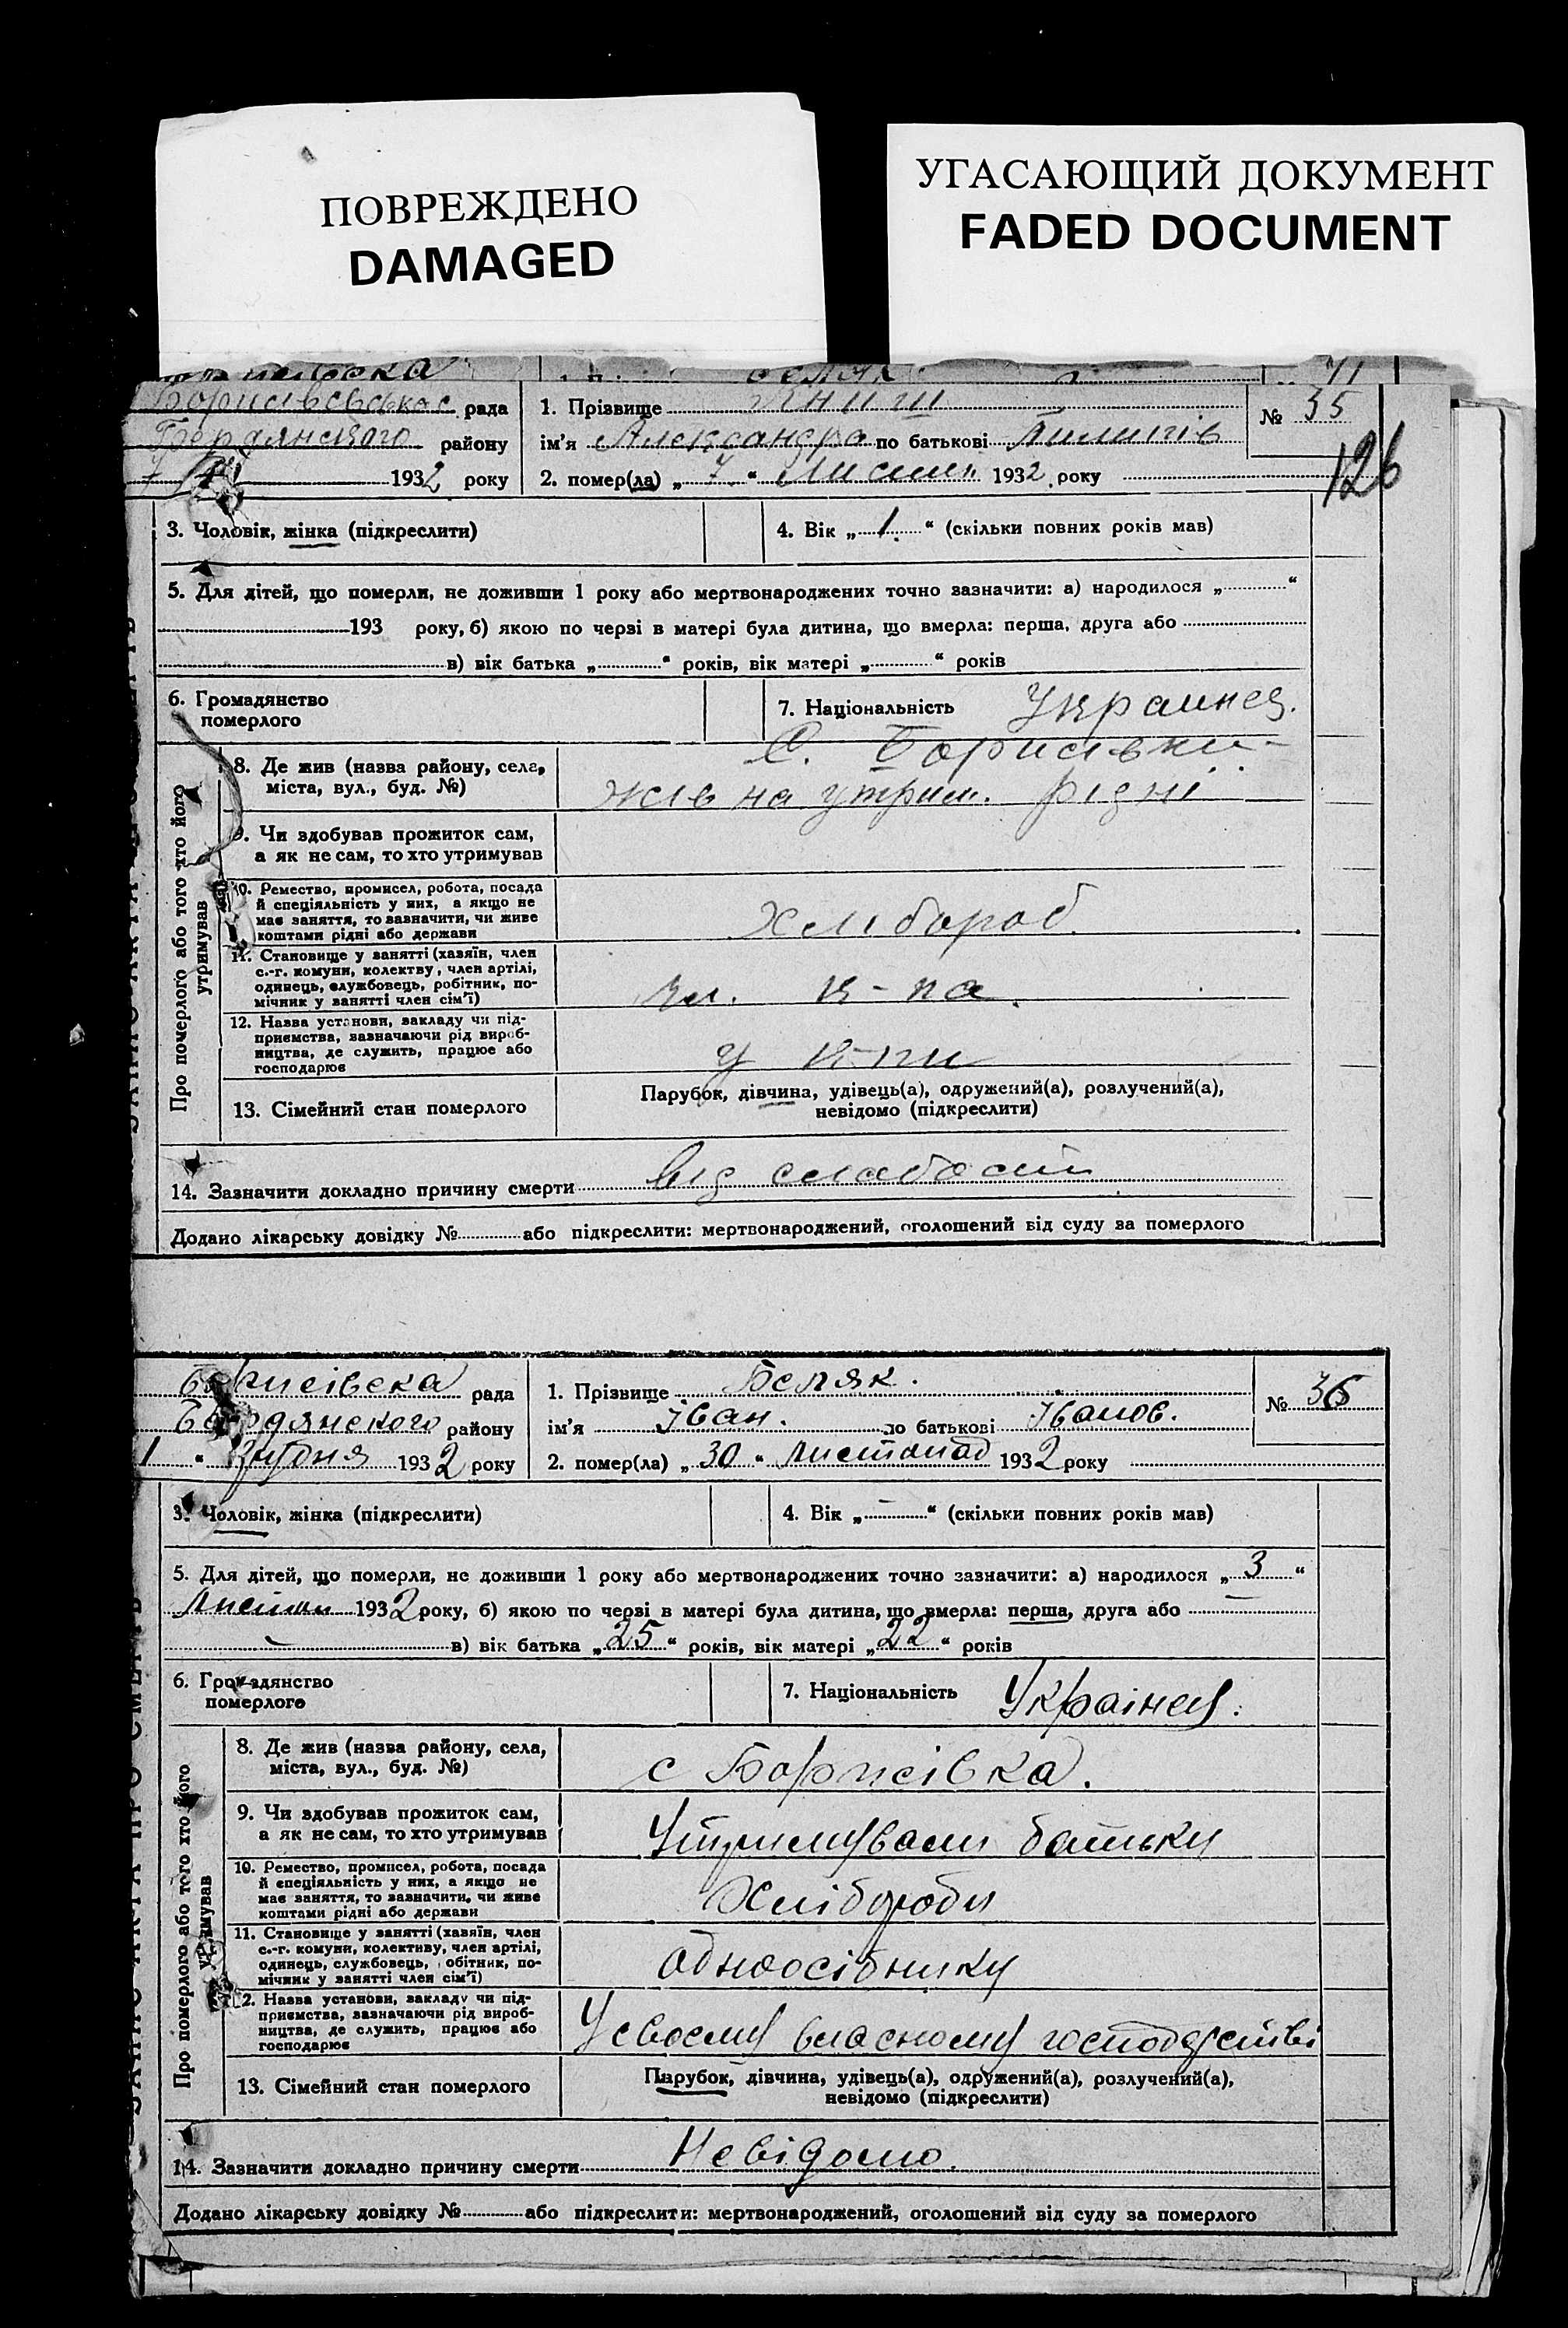 ПОВРЕЖДЕНО
DAMAGED
УГАСАЮЩИЙ ДОКУМЕНТ
FADED DOCUMENT
71
рада
Бердянського району
1932 року
1. Прізвище Книш
ім'я Александра по батькові Пилипів
2. помер(ла) „ 7 “ Листп. 1932 року
№ 35
126
3. Чоловік, жінка (підкреслити)
4. Вік „ 1 “ (скільки повних років мав)
5. Для дітей, що померли, не доживши 1 року або мертвонароджених точно зазначити: а) народилося „ “
193 року, б) якою по черзі в матері була дитина, що вмерла: перша, друга або
в) вік батька „ “ років, вік матері „ “ років
6. Громадянство
померлого
7. Національність Украинец.
Про померлого або того хто його
утримував
8. Де жив (назва району, села,
міста, вул., буд. №)
С. Борисівки
жив на утрим. рідні
9. Чи здобував прожиток сам,
а як не сам, то хто утримував
10. Ремество, промисел, робота, посада
й спеціяльність у них, а якщо не
має заняття, то зазначити, чи живе
коштами рідні або держави
Хлибороб.
11. Становище у занятті (хазяїн, член
с.-г. комуни, колектву, член артілі,
одинець, службовець, робітник, по-
мічник у занятті член сім'ї)
чл. к-па.
12. Назва установи, закладу чи під-
приємства, зазначаючи рід вироб-
ництва, де служить, працює або
господарює
у к-пи
13. Сімейний стан померлого
Парубок, дівчина, удівець(а), одружений(а), розлучений(а),
невідомо (підкреслити)
14. Зазначити докладно причину смерти від слабости
Додано лікарську довідку № або підкреслити: мертвонароджений, оголошений від суду за померлого
Борисівска рада
Бердянского району
1 “ Грудня 1932 року
1. Прізвище Беляк.
ім'я Іван. по батькові Іванов.
2. помер(ла) „ 30 “ листопад 1932 року
№ 36
3. Чоловік, жінка (підкреслити)
4. Вік „ – “ (скільки повних років мав)
5. Для дітей, що померли, не доживши 1 року або мертвонароджених точно зазначити: а) народилося „ 3 “
Листоп 1932 року, б) якою по черзі в матері була дитина, що вмерла: перша, друга або
в) вік батька „ 25 “ років, вік матері „ 22 “ років
6. Громадянство
померлого
7. Національність Українец.
Про померлого або того хто його
утримував
8. Де жив (назва району, села,
міста, вул., буд. №)
с Борисівка.
9. Чи здобував прожиток сам,
а як не сам, то хто утримував
Утримували батьки
10. Ремество, промисел, робота, посада
й спеціяльність у них, а якщо не
має заняття, то зазначити, чи живе
коштами рідні або держави
Хлібороби
11. Становище у занятті (хазяїн, член
с.-г. комуни, колективу, член артілі,
одинець, службовець, робітник, по-
мічник у занятті член сім'ї)
одноосібнику
12. Назва установи, закладу чи під-
приємства, зазначаючи рід вироб-
ництва, де служить, працює або
господарює
У своєму власному господарстві
13. Сімейний стан померлого
Парубок, дівчина, удівець(а), одружений(а), розлучений(а),
невідомо (підкреслити)
14. Зазначити докладно причину смерти Невідомо.
Додано лікарську довідку № або підкреслити: мертвонароджений, оголошений від суду за померлого